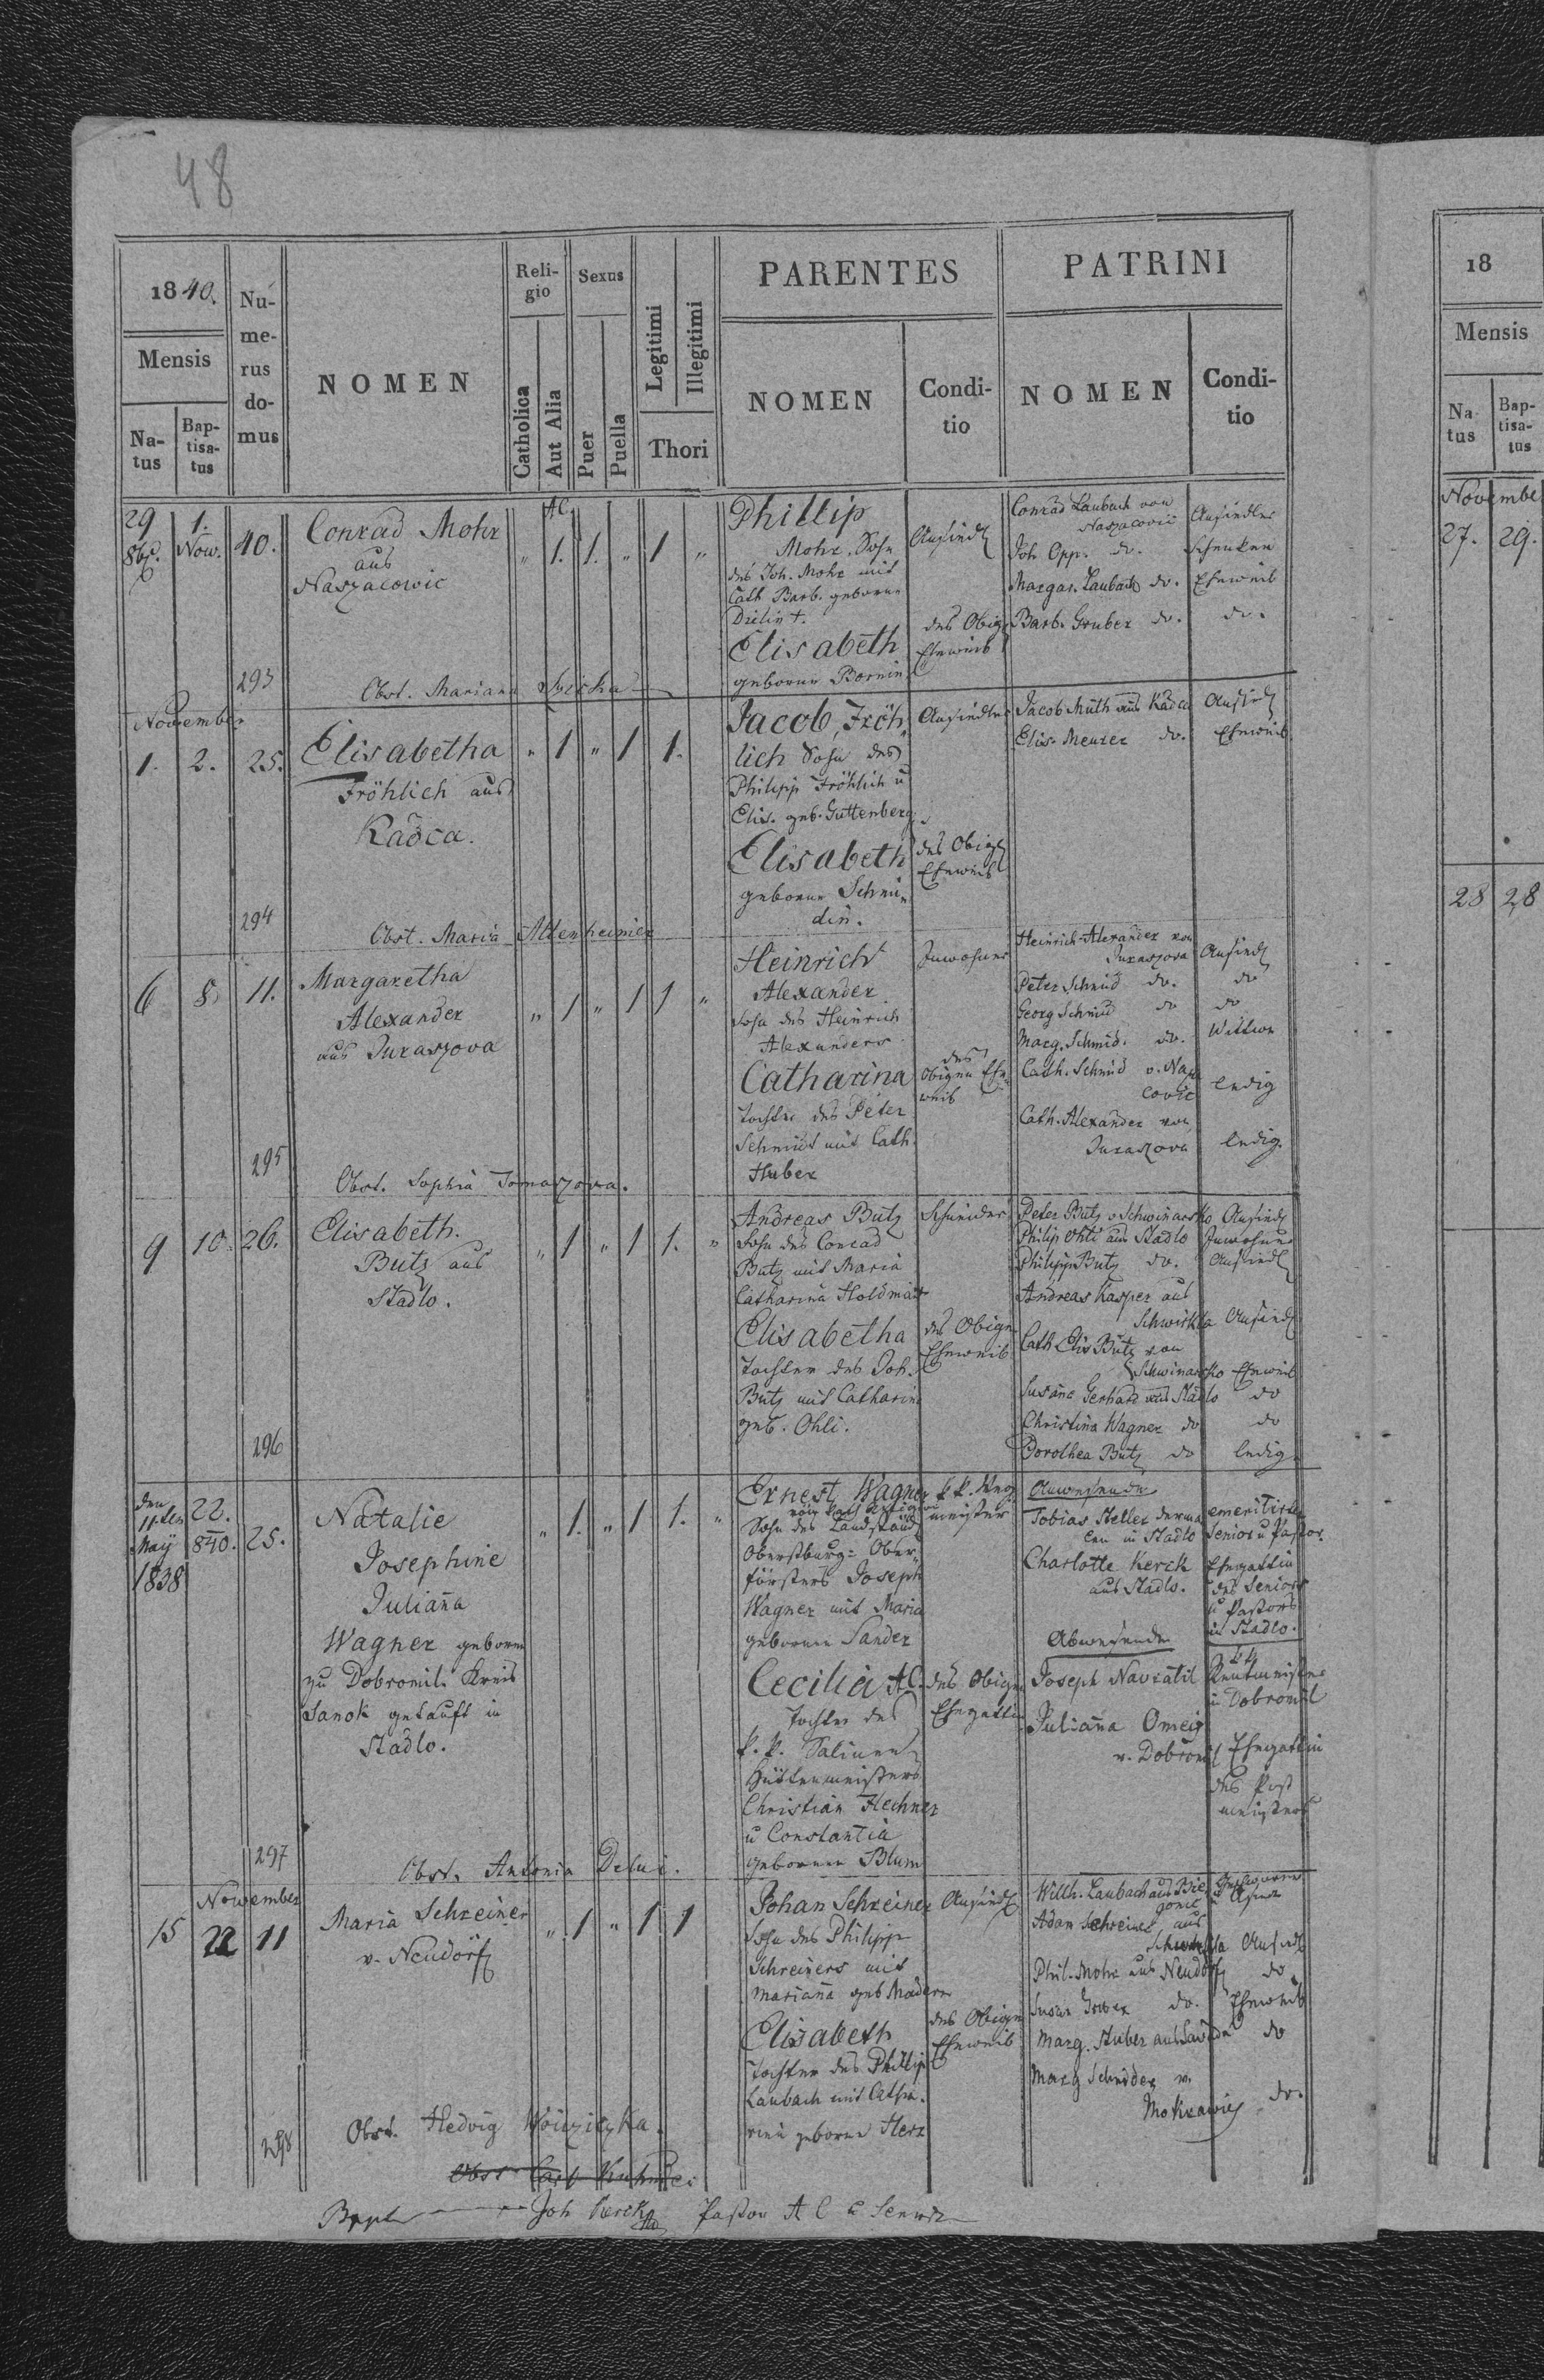 48
1840.
Mensis
Na-
tus
Bap-
tisa-
tus
Nu-
me-
rus
do-
mus
NOMEN
Reli-
gio
Catholica
Aut Alia
Sexus
Puer
Puella
Legitimi
Illegitimi
Thori
PARENTES
NOMEN
Condi-
tio
PATRINI
NOMEN
Condi-
tio
29
8br.
1.
Nov.
40.
Conrad Mohr
aus
Naszacowic
AC.
" 1. 1. " 1 "
Phillip
Mohr. Sohn
des Joh. Mohr mit
Cath Barb. geborne
Elisabeth
geborne
Ansiedl
des Obig
Eheweib
Conrad Laubach von
Naszacovic
Joh. Opp. do.
Margar. Laubach do.
Barb. Gruber do.
Ansiedler
Schenker
Eheweib
do.
293
Obst. Mariana
November
1. 2. 25.
Elisabetha
Fröhlich aus
Kadca.
" 1 " 1 1.
Jacob, Fröh„
lich Sohn des
Philipp Fröhlich u
Elis. geb. Guttenberg.
Elisabeth
geborne Schmi„
din.
Ansiedler
des Obig
Eheweib
Jacob Muth aus Kadca
Elis. Meurer do.
Ansiedl
Eheweib
294
Obst. Maria Altenheimer
6 8 11.
Margaretha
Alexander
aus Juraszova
" 1 " 1 1 "
Heinrich
Alexander.
Sohn des Heinrich
Alexanders
Catharina
Tochter des Peter
Schmid mit Cath.
Huber
Inwohner
des
Obigen Ehe„
weib
Heinrich Alexander von
Juraszova
Peter Schmid do.
Georg Schmid do
Marg. Schmid. do.
Cath. Schmid v. Nasz
covic
Cath. Alexander von
Juraszova
Ansiedl
do
do
Wittwe
ledig
ledig.
295
Obst. Sophia Tomaszova.
9 10. 26.
Elisabeth.
Butz aus
Stadlo.
" 1 " 1 1. "
Andreas Butz
Sohn des Conrad
Butz mit Maria
Catharina
Elisabetha
Tochter des Joh.
Butz mit Catharina
geb. Ohli.
Schneider
des Obigen
Eheweib
Peter Butz v Schwinarsko
Philip Ohli aus Stadlo
Philipp Butz do.
Andreas Kasper aus
Schwirkla
Cath Elis Butz von
Schwinarsko
Susana Gerhard aus Stadlo
Christina Wagner do
Dorothea Butz do
Ansiedl
Inwohner
Ansiedl
Ansiedl
Eheweib
do
do
ledig
296
den
11ten
May
1838
22.
840.
25.
Natalie
Josephine
Juliana
Wagner geboren
zu Dobromil Kreis
Sanok getauft in
Stadlo.
" 1. " 1 1. "
Ernest Wagner
Sohn des
Oberförsters Joseph
Wagner mit Maria
geborne Sander
Cecilia AC.
Tochter des
k. k. Salinen
Hüttenmeisters
Christian Flechner
u Constantia
geborne Blum
k k. Weg
meister
des Obigen
Ehegattin
Anwesende
Tobias Steller derma
len in Stadlo
Charlotte Kerck
aus Stadlo.
Abwesende
Joseph Navratil
Juliana Omeis
v. Dobromil
emeritirter
Senior u Pastor.
Ehegattin
des Seniors
u Pastors
in Stadlo.
k k
Rentmeister
in Dobromil
Ehegattin
des Post
meisters
297
Obst. Antonia
November
15 22 11
Maria Schreiner
v. Neudörf
" 1 " 1 1
Johan Schreiner
Sohn des Philipp
Schreiners mit
Mariana geb
Elisabeth
Tochter des Phillip
Laubach mit Catha.
rina geborne Herz
Ansiedl
des Obigen
Eheweib
Willh. Laubach aus Bie
gonic
Adam Schreiner aus
Phil. Mohr aus Neudörf
Susan Gruber do.
Marg. Huber aus
Marg Schneider v.
Ansiedl
do
Eheweib
do
do.
298
Obst. Hedvig
Joh Kerck Pastor A C u Senior
18
Mensis
Na-
tus
Bap-
tisa-
tus
November
27. 29.
28 28